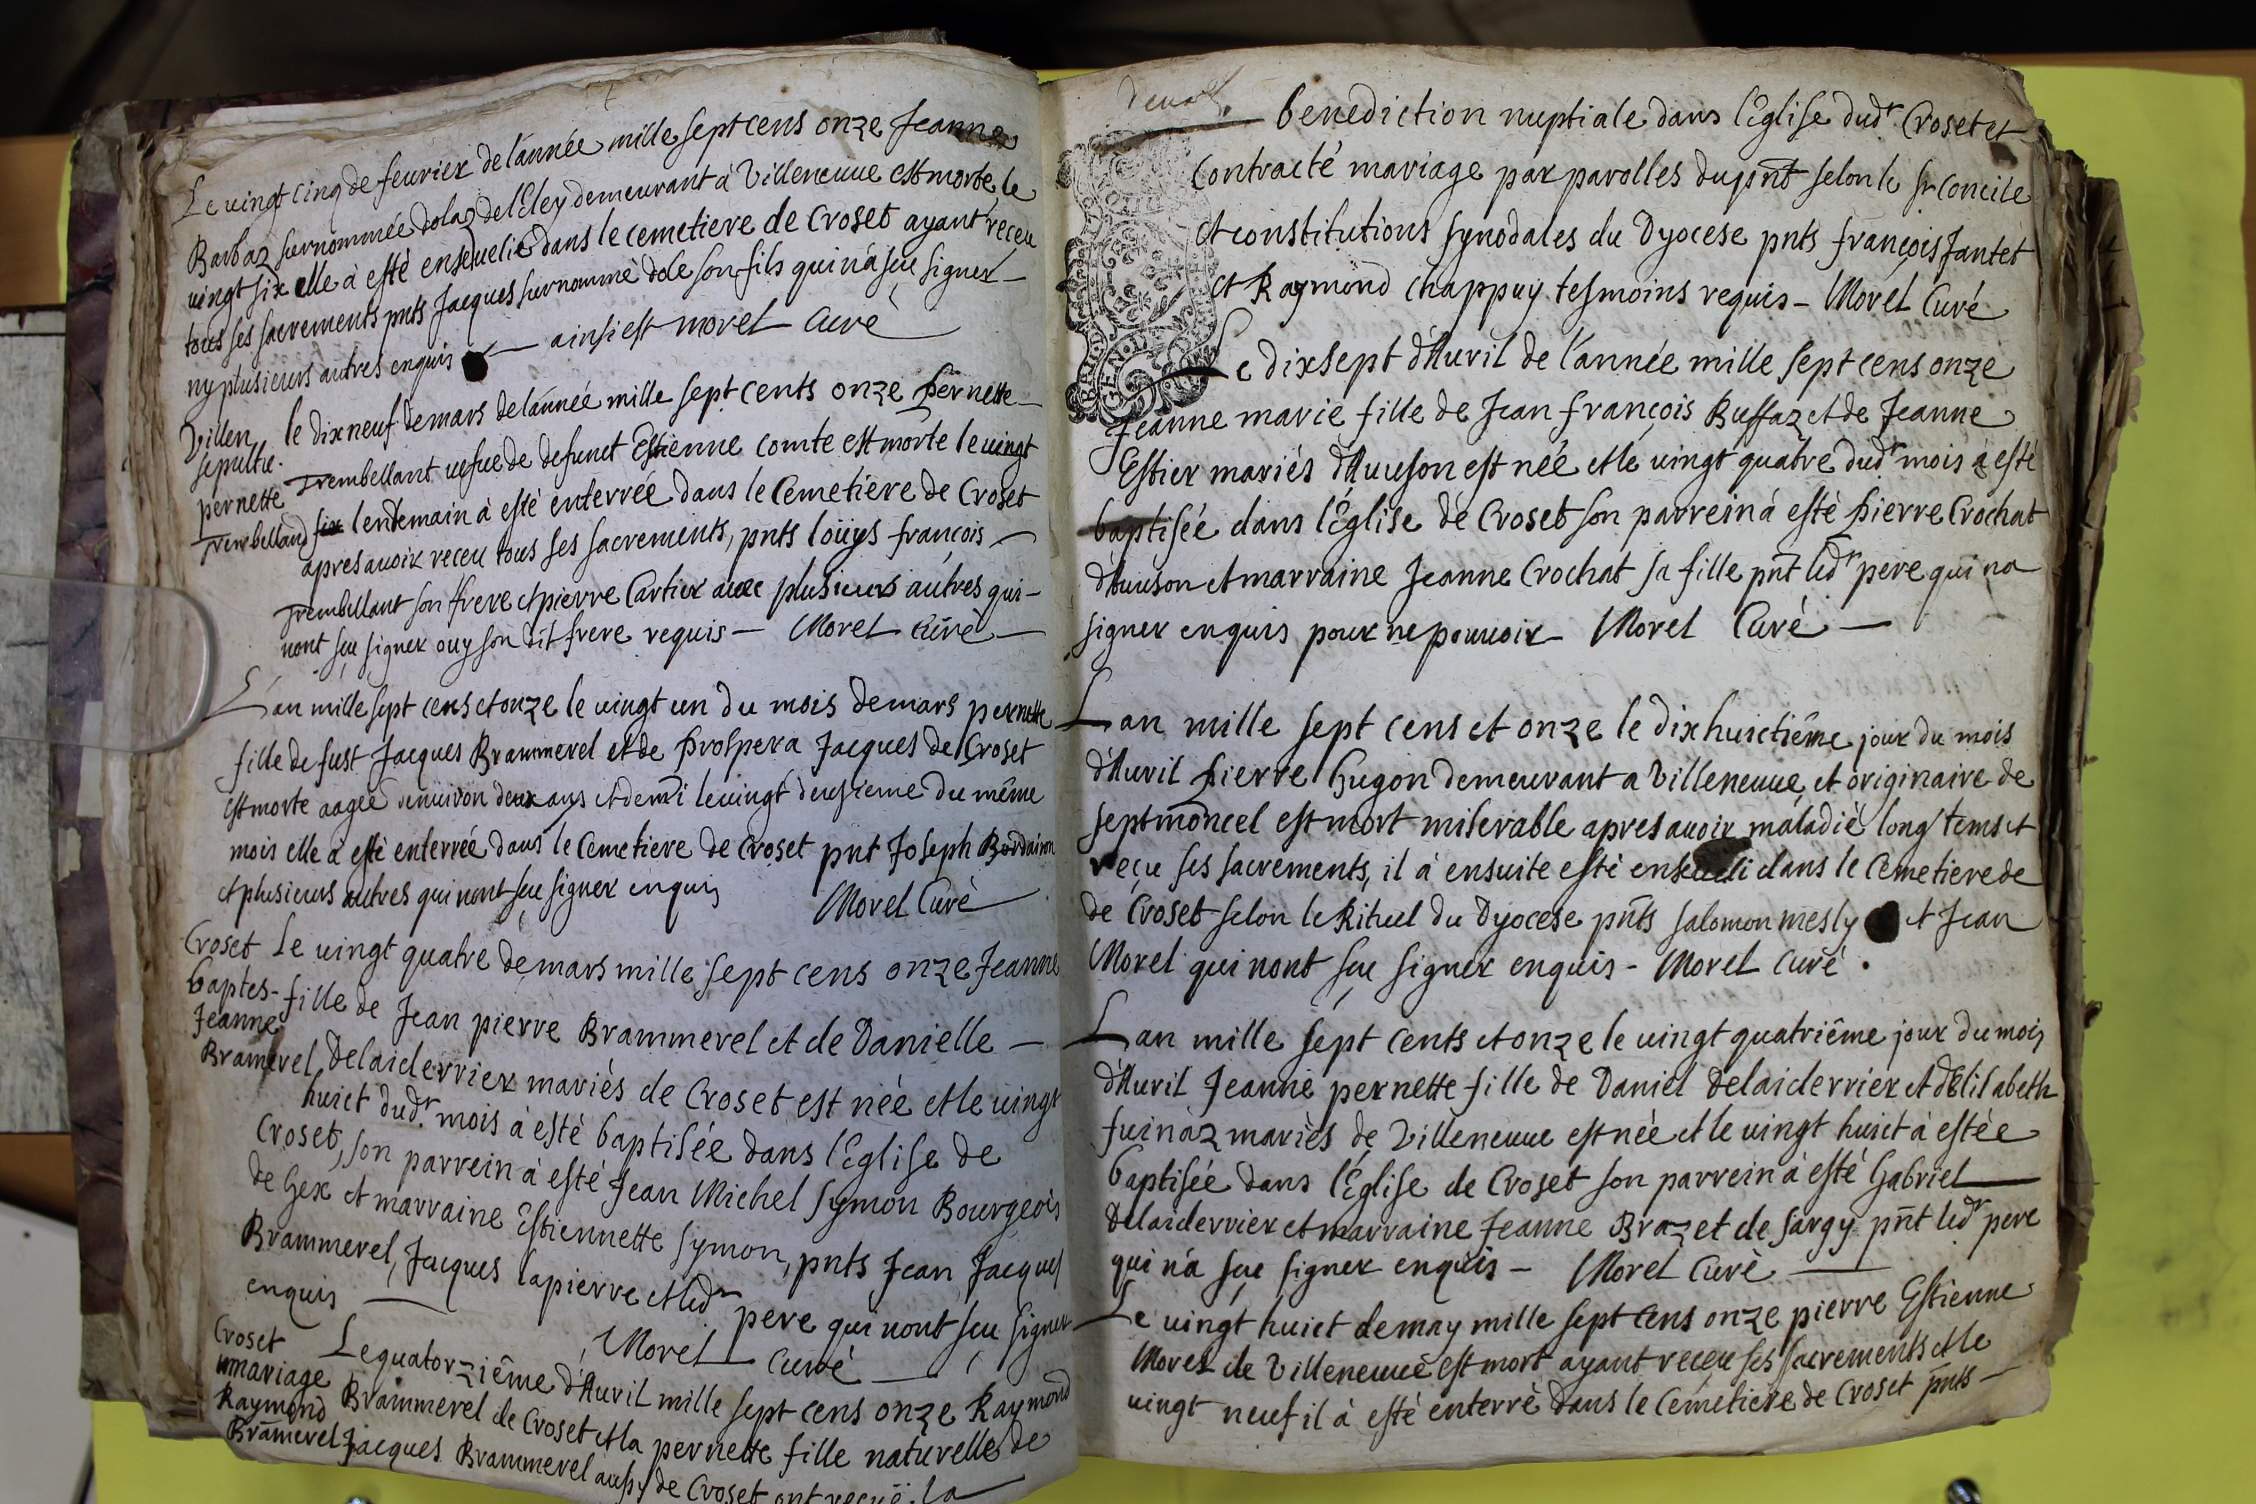 Le vingt cinq de feurier de lannée mille sept cens onze Jeanne
Barbaz surnommée dolaz de lEley demeurant à Villeneuue est morte, le
vingt six elle à esté enseuelie dans le cemetiere de Croset ayant receu
tous ses sacrements pnts Jacques surnommé dole son fils qui nà sçu signer
ny plusieurs autres enquis — ainsi est morel Curé
Villen. le dix neuf de mars de lannée mille sept cents onze Pernette
sepultre. Trembellant uefue de defunct Estienne comte est morte le vingt
pernette
Trembelland six lendemain à esté enterrée dans le Cemetiere de Croset
apres auoir receu tous ses sacrements, pnts loüys françois
Trembellant son frere et pierre Cartier auec plusieurs autres qui
nont sçu signer ouy son dit frere requis — Morel Curé
Lan mille sept cens et onze le vingt un du mois de mars pernette
fille de fust Jacques Brammerel et de Prospera Jacques de Croset
est morte aagée denuiron deux ans et demi le vingt deusieme du même
mois elle à esté enterrée dans le Cemetiere de Croset pnt Joseph
et plusieurs autres qui nont sçu signer enquis Morel Curé
Croset Le vingt quatre de mars mille sept cens onze Jeanne
baptes- fille de Jean pierre Brammerel et de Danielle —
Jeanne
Bramerel Delaiderrier mariés de Croset est née et le vingt
huict dudr. mois à esté baptisée dans lEglise de
Croset, son parrein à esté Jean Michel Symon Bourgeois
de Gex et marraine Estiennette Symon, pnts Jean Jacques
Brammerel, Jacques Lapierre et ledr pere qui nont sçu signer
enquis — Morel Curé —
Croset Le quatorziême d'Auril mille sept cens onze Raymond
mariage Brammerel de Croset et la pernette fille naturelle de
Raymond
Bramerel Jacques Brammerel aussy de Croset ont reçuë la
benediction nuptiale dans lEglise dudr Croset et
contracté mariage par parolles du pnt selon le st concile
et constitutions synodales du Dyocese pnts françois Jantet
et Raymond Chappuy tesmoins requis — Morel Curé
Le dix sept d'Auril de l'année mille sept cens onze
Jeanne marie fille de Jean françois Buffaz et de Jeanne
Estier mariés d'Auuson est née et le vingt quatre dudr mois à esté
baptisée dans l'Eglise de Croset son parrein à esté Pierre Crochat
d'Auuson et marraine Jeanne Crochat sa fille pnt ledr pere qui na
signer enquis pour ne pouuoir — Morel Curé —
Lan mille sept cens et onze le dix huictiême jour du mois
d'Auril Pierre Hugon demeurant a Villeneuue, et originaire de
septmoncel est mort miserable apres auoir maladié long tems et
reçu ses sacrements, il à ensuite esté enseueli dans le Cemetiere de
de Croset selon le Rituel du Dyocese pnts Salomon mesly et Jean
Morel qui nont sçu signer enquis — Morel Curé .
Lan mille sept cents et onze le vingt quatriême jour du mois
d'Auril Jeanne pernette fille de Daniel Delaiderrier et dElisabeth
fuinàz mariés de Villeneuue est née et le vingt huict à estée
baptisée dans l'Eglise de Croset son parrein à esté Gabriel
Delaiderrier et marraine Jeanne Brazet de Sargy pnt ledr pere
qui n'a sçu signer enquis — Morel Curé —
Le vingt huict de may mille sept cens onze pierre Estienne
Morel de Villeneuue est mort ayant reçeu ses sacrements et le
vingt neuf il à esté enterré dans le Cemetiere de Croset pnts —